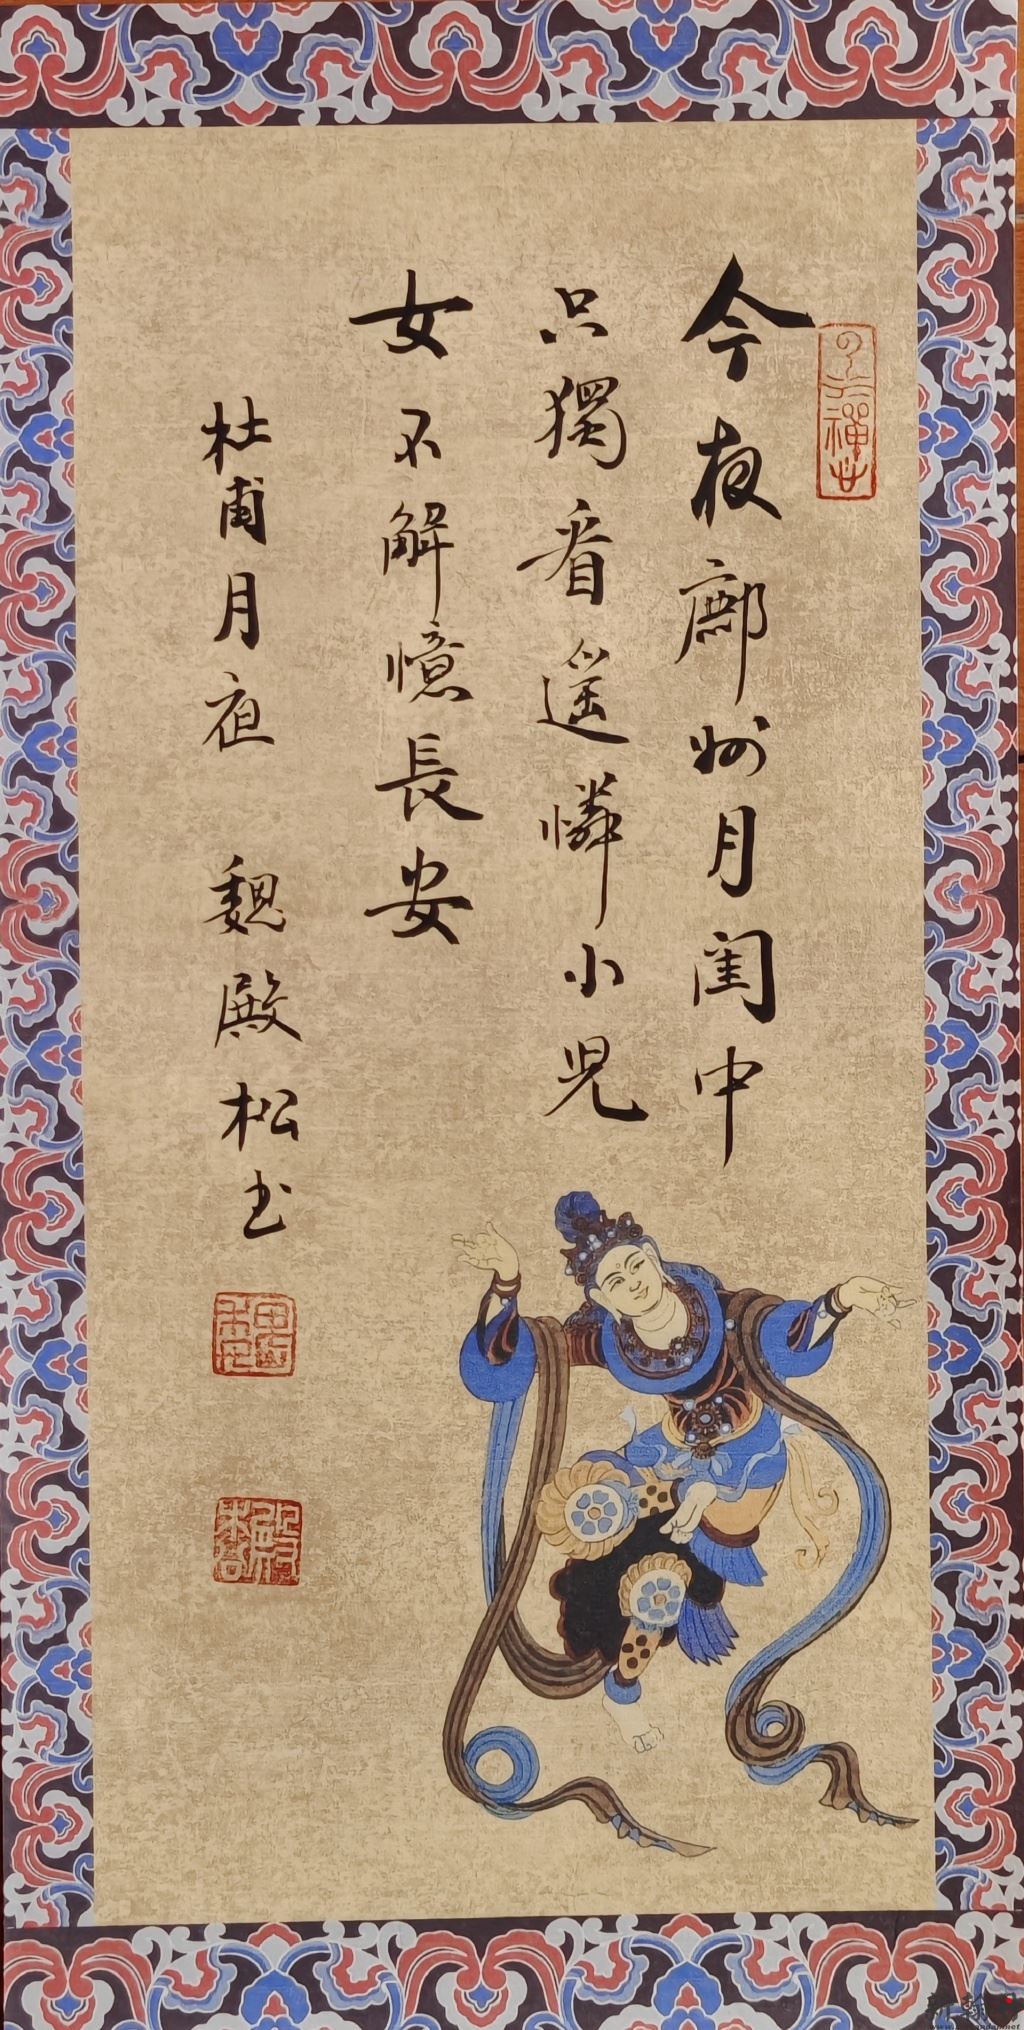 今夜鄜州月闺中
只獨看遥憐小児
女不解憶長安
杜甫月夜 魏殿松书